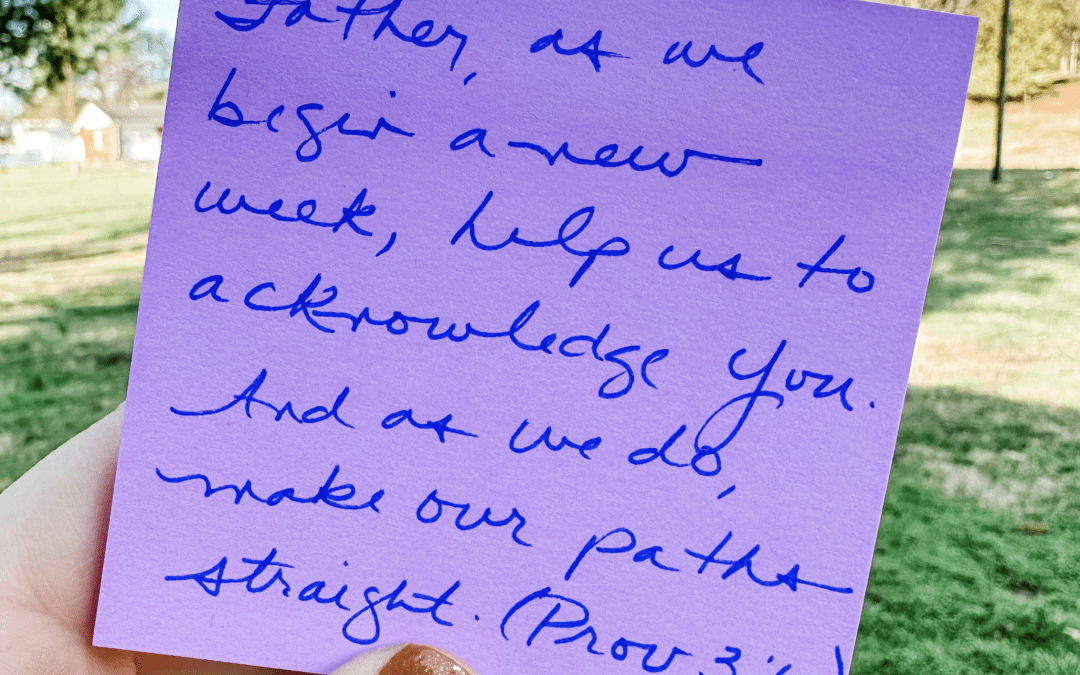 Father, as we
begin a new
week, help us to
acknowledge You.
And as we do,
make our paths
straight. (Prov 3: